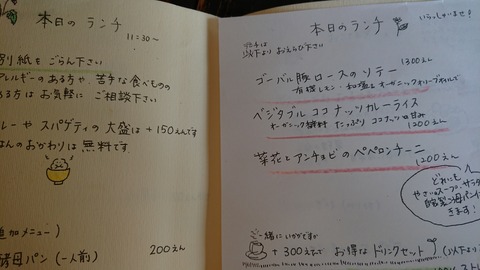 本日の ランチ
11:30〜
別紙を ごらん下さい
アレルギーのある方や、苦手な食べもの
ある方は お気軽に ご相談下さい
レーや スパゲティの 大盛は +150えんです
はんのおかわりは 無料です
追加メニュー)
酵母パン (一人前)
200えん
本日の ランチ
いらっしゃいませ!
以下より おえらび下さい
ゴーバル豚ロースの ソテー
1300えん
ベジタブル ココナッツカレーライス
オーガニック雑穀 たっぷり ココナッツの甘み
1200えん
菜花とアンチョビの ペペロンチーニ
1200えん
どれにも
やさいのスープ、サラダ
きます!
ご一緒にいかがですか
+300えんで お得な ドリンクセット